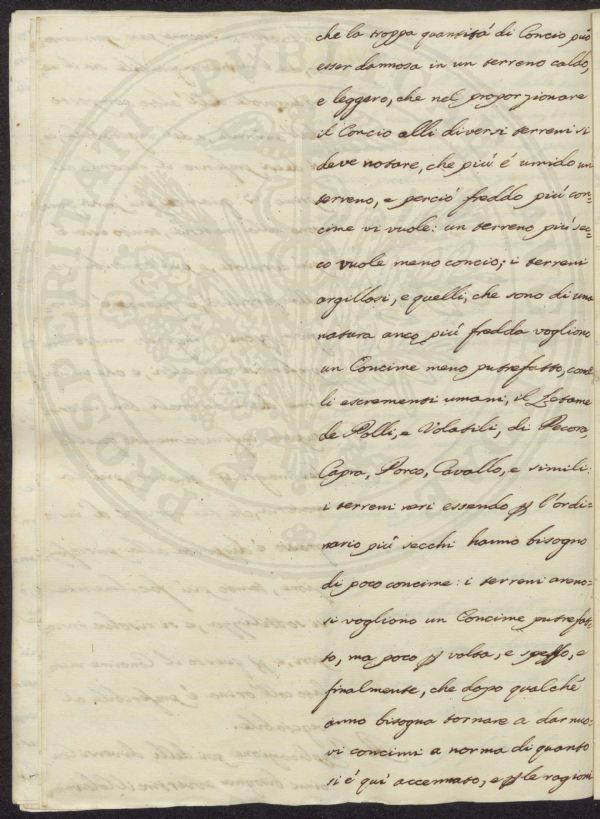 che la troppa quantità di Concio può
esser dannosa in un terreno caldo,
e leggero, che nel proporzionare
il Concio alli diversi terreni si
deve notare, che più è umido un
terreno, e perciò freddo più con=
cime vi vuole: un terreno più sec=
co vuole meno concio; i terreni
argillosi, e quelli, che sono di una
natura anco più fredda vogliono
un Concime meno putrefatto, com'è
li escrementi umani, il Letame
de Polli, e Volatili, di Pecora,
Capra, Porco, Cavallo, e simili:
i terreni neri essendo p l'ordi=
nario più secchi hanno bisogno
di poco concime: i terreni areno=
si vogliono un Concime putrefat=
to, ma poco p volta, e spesso, e
finalmente, che dopo qualché
anno bisogna tornare a dar nuo=
vi concimi a norma di quanto
si è qui accennato, e p le ragioni
PROSPERITATI PUBLICAE